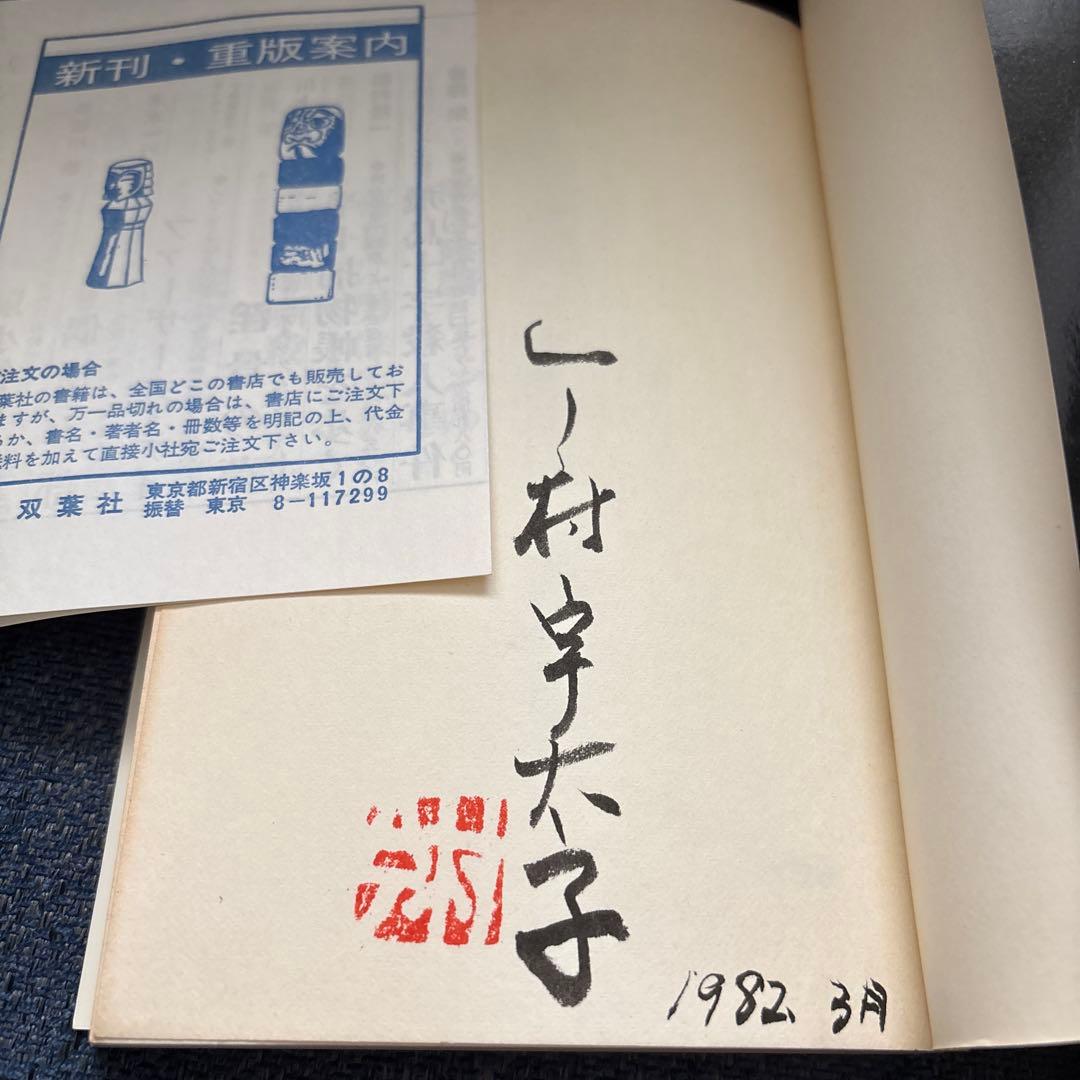 新刊・重版案内
注文の場合
葉社の書籍は、全国どこの書店でも販売してお
ますが、万一品切れの場合は、書店にご注文下
るか、書名・著者名・冊数等を明記の上、代金
送料を加えて直接小社宛ご注文下さい。
双葉社 東京都新宿区神楽坂1の8
振替 東京 8-117299
山村
太子
1982. 3月